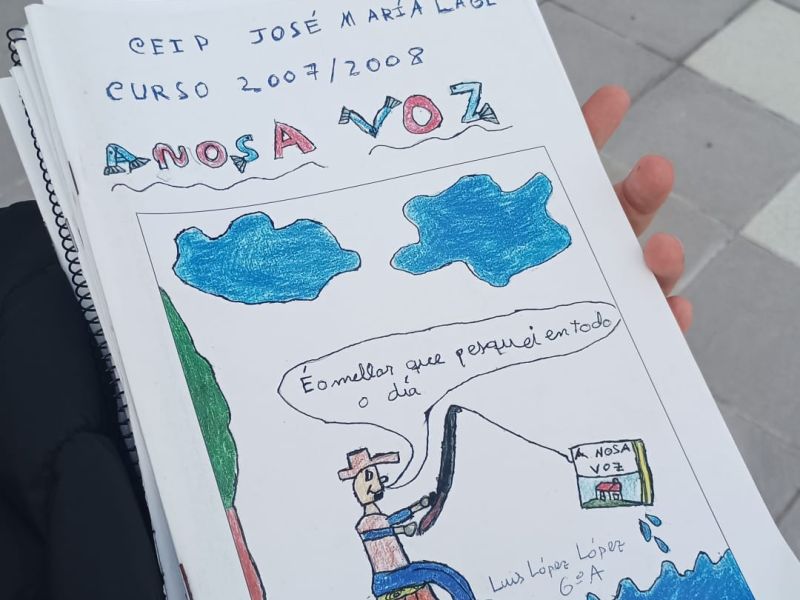 CEIP JOSÉ MARÍA LAGE
CURSO 2007/2008
A NOSA VOZ
É o mellor que pesquei en todo
o día
A NOSA
VOZ
Luis López López
6º A